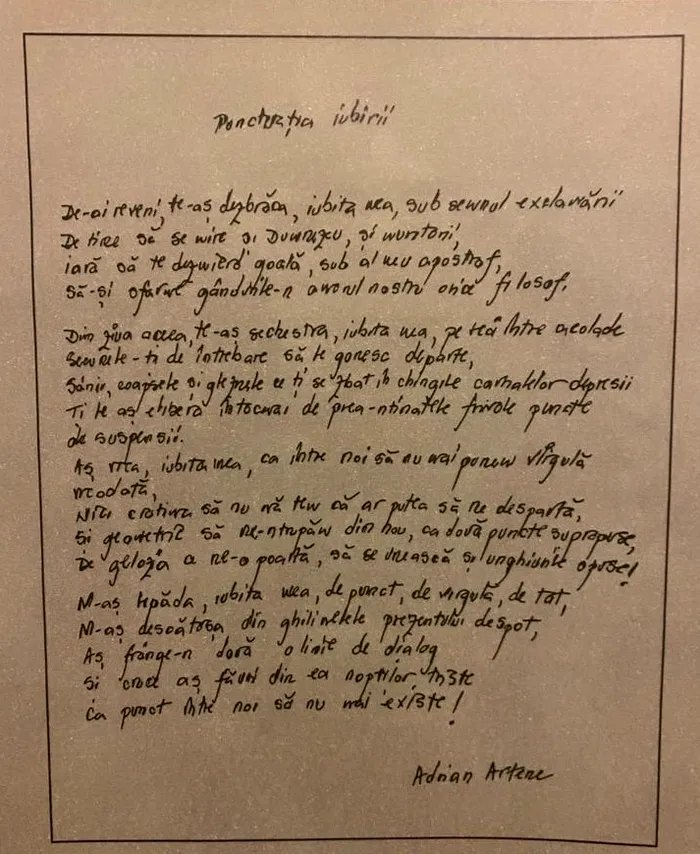 Punctuația iubirii
De-ai reveni, te-aș dezbrăca, iubita mea, sub semnul exclamării
De tine să se mire și Dumnezeu, și muritorii,
iară să te dezmierd goală, sub al meu apostrof,
Să-și sfarme gândurile-n amorul nostru orice filosof.
Din ziua aceea, te-aș sechestra, iubita mea, pe reă între acolade
Semnele-ți de întrebare să le gonesc departe,
Sânii, coapsele și gleznele ce ți se zbat în chingile carnalelor depresii
Ți le aș elibera întocmai de prea-ntinatele frivole puncte
de suspensii.
Aș vrea, iubita mea, ca între noi să nu mai punem virgulă
niciodată,
Nici cratima să nu vă tem că ar putea să ne despartă,
Și geometric să ne-ntrupăm din nou, ca două puncte suprapuse,
De gelozia ce ne-o poartă, să se unească și unghiurile opuse!
M-aș lepăda, iubita mea, de punct, de virgulă, de tot,
M-aș descătușa din ghilimelele prezentului despot,
Aș frânge-n două o linie de dialog
Și cruce aș făuri din ea nopților triste
Ca punct între noi să nu mai existe!
Adrian Artene